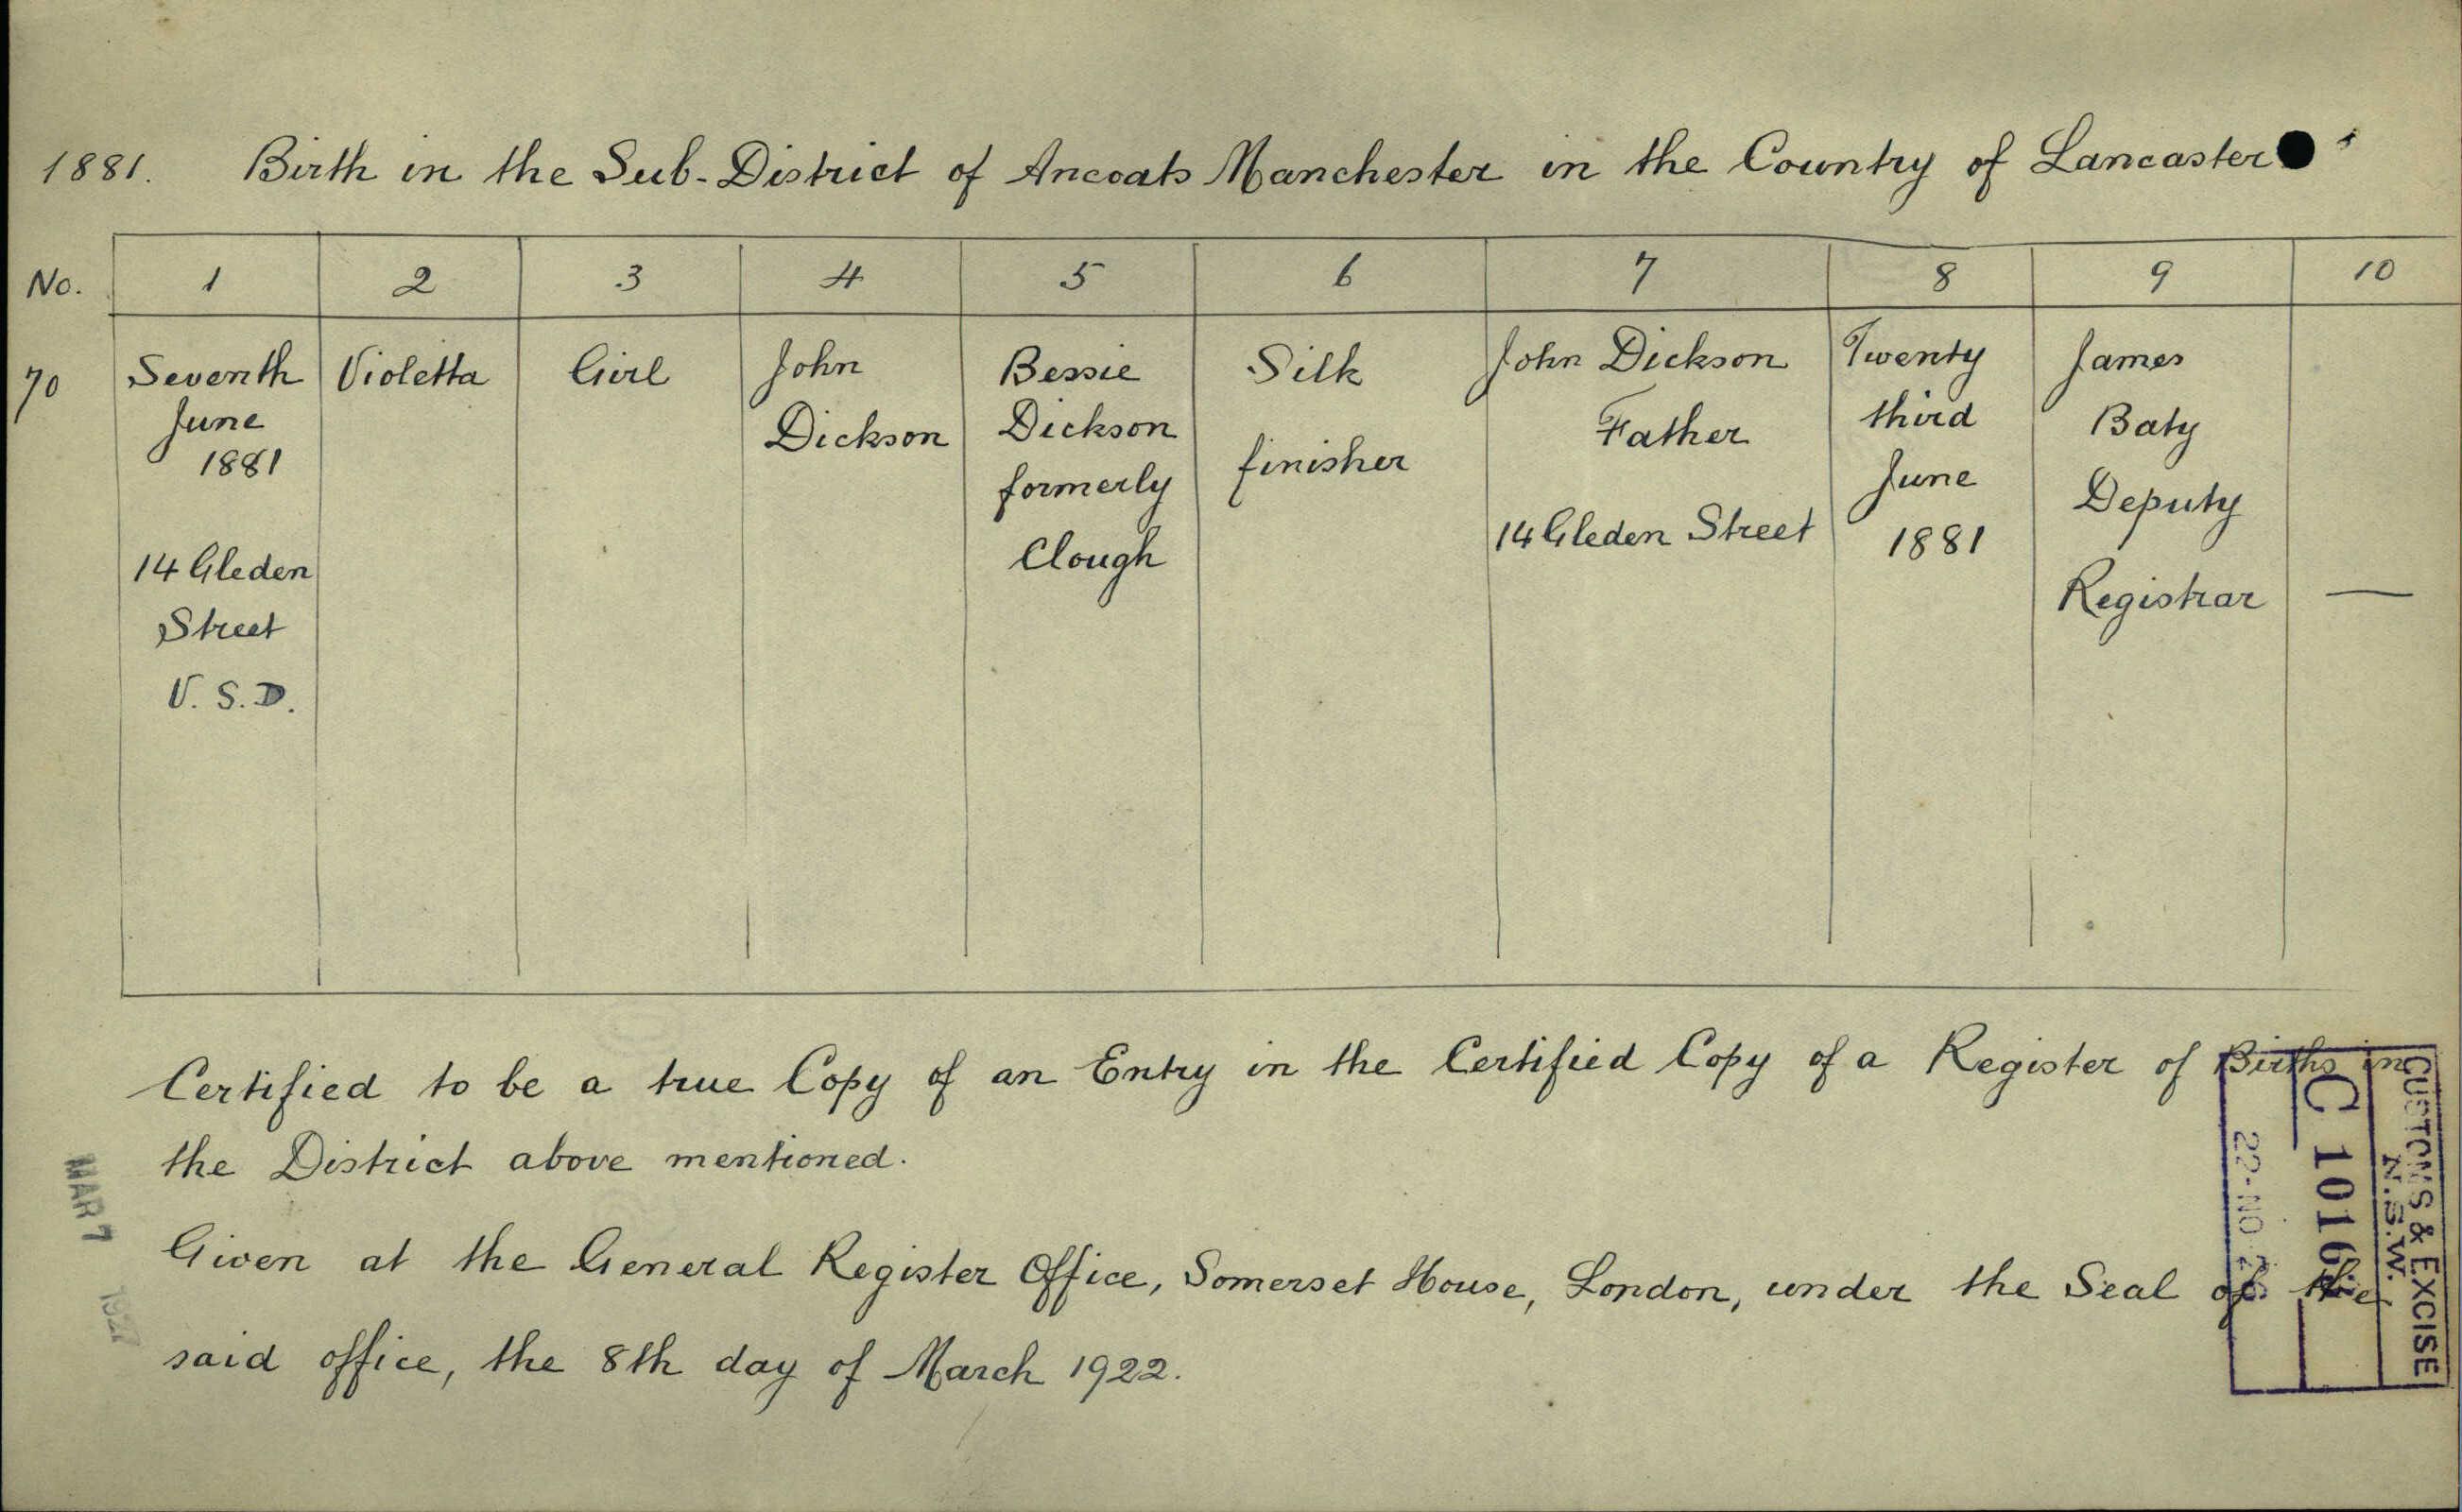 1881. Birth in the Sub-District of Ancoats Manchester in the Country of Lancaster
No. 1 2 3 4 5 6 7 8 9 10
70
Seventh
June
1881
14 Gleden
Street
U. S. D.
Violetta
Girl
John
Dickson
Bessie
Dickson
formerly
Clough
Silk
finisher
John Dickson
Father
14 Gleden Street
Twenty
third
June
1881
James
Baty
Deputy
Registrar
—
Certified to be a true Copy of an Entry in the Certified Copy of a Register of Births in
the District above mentioned.
Given at the General Register Office, Somerset House, London, under the Seal of the
said office, the 8th day of March 1922.
MAR 7
CUSTOMS & EXCISE
N.S.W.